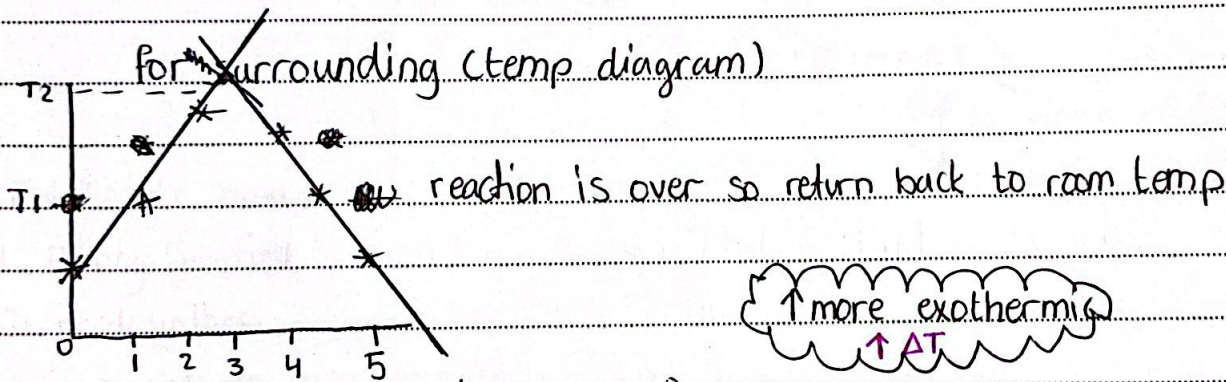 for surrounding (temp diagram)
T2
T1
reaction is over so return back to room temp
↑ more exothermic
↑ ΔT
0 1 2 3 4 5